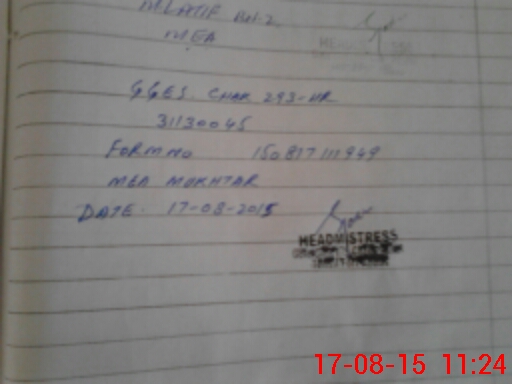 M.LATIF BH-2
MEA
GGES. CHAK 293-HR
31130045
FORM NO 150817111949
MEA MUKHTAR
DATE. 17-08-2015
HEADMISTRESS
17-08-15 11:24